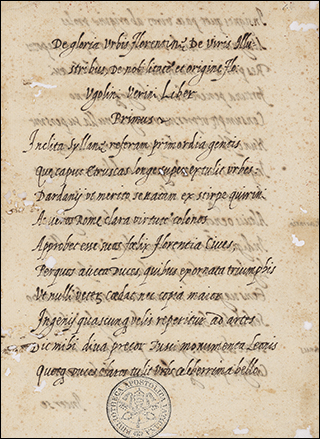 De gloria Urbis florentinę De Viris Illu
stribus, De nobilitate et origine flo.
Ugolini Verini Liber
Primus
Inclita Syllanę referam primordia gentis
Que caput Etruscas longe super extulit urbes.
Dardanij ut merito se natam ex stirpe quirini
At veros Romę clara virtute colonos
Approbet esse suos fœlix florencia Cives,
Perque aucta Duces, quibus exornata triumphis
Ut nulli vetęr cędat, nec copia maior
Ingenij quascunq velis reperitur ad artes
Dic mihi diva precor Tusci monumenta Leonis
Quosq Duces clara tulit Urbs celeberrima bello.
BIBLIOTHECA APOSTOLICA VATICANA